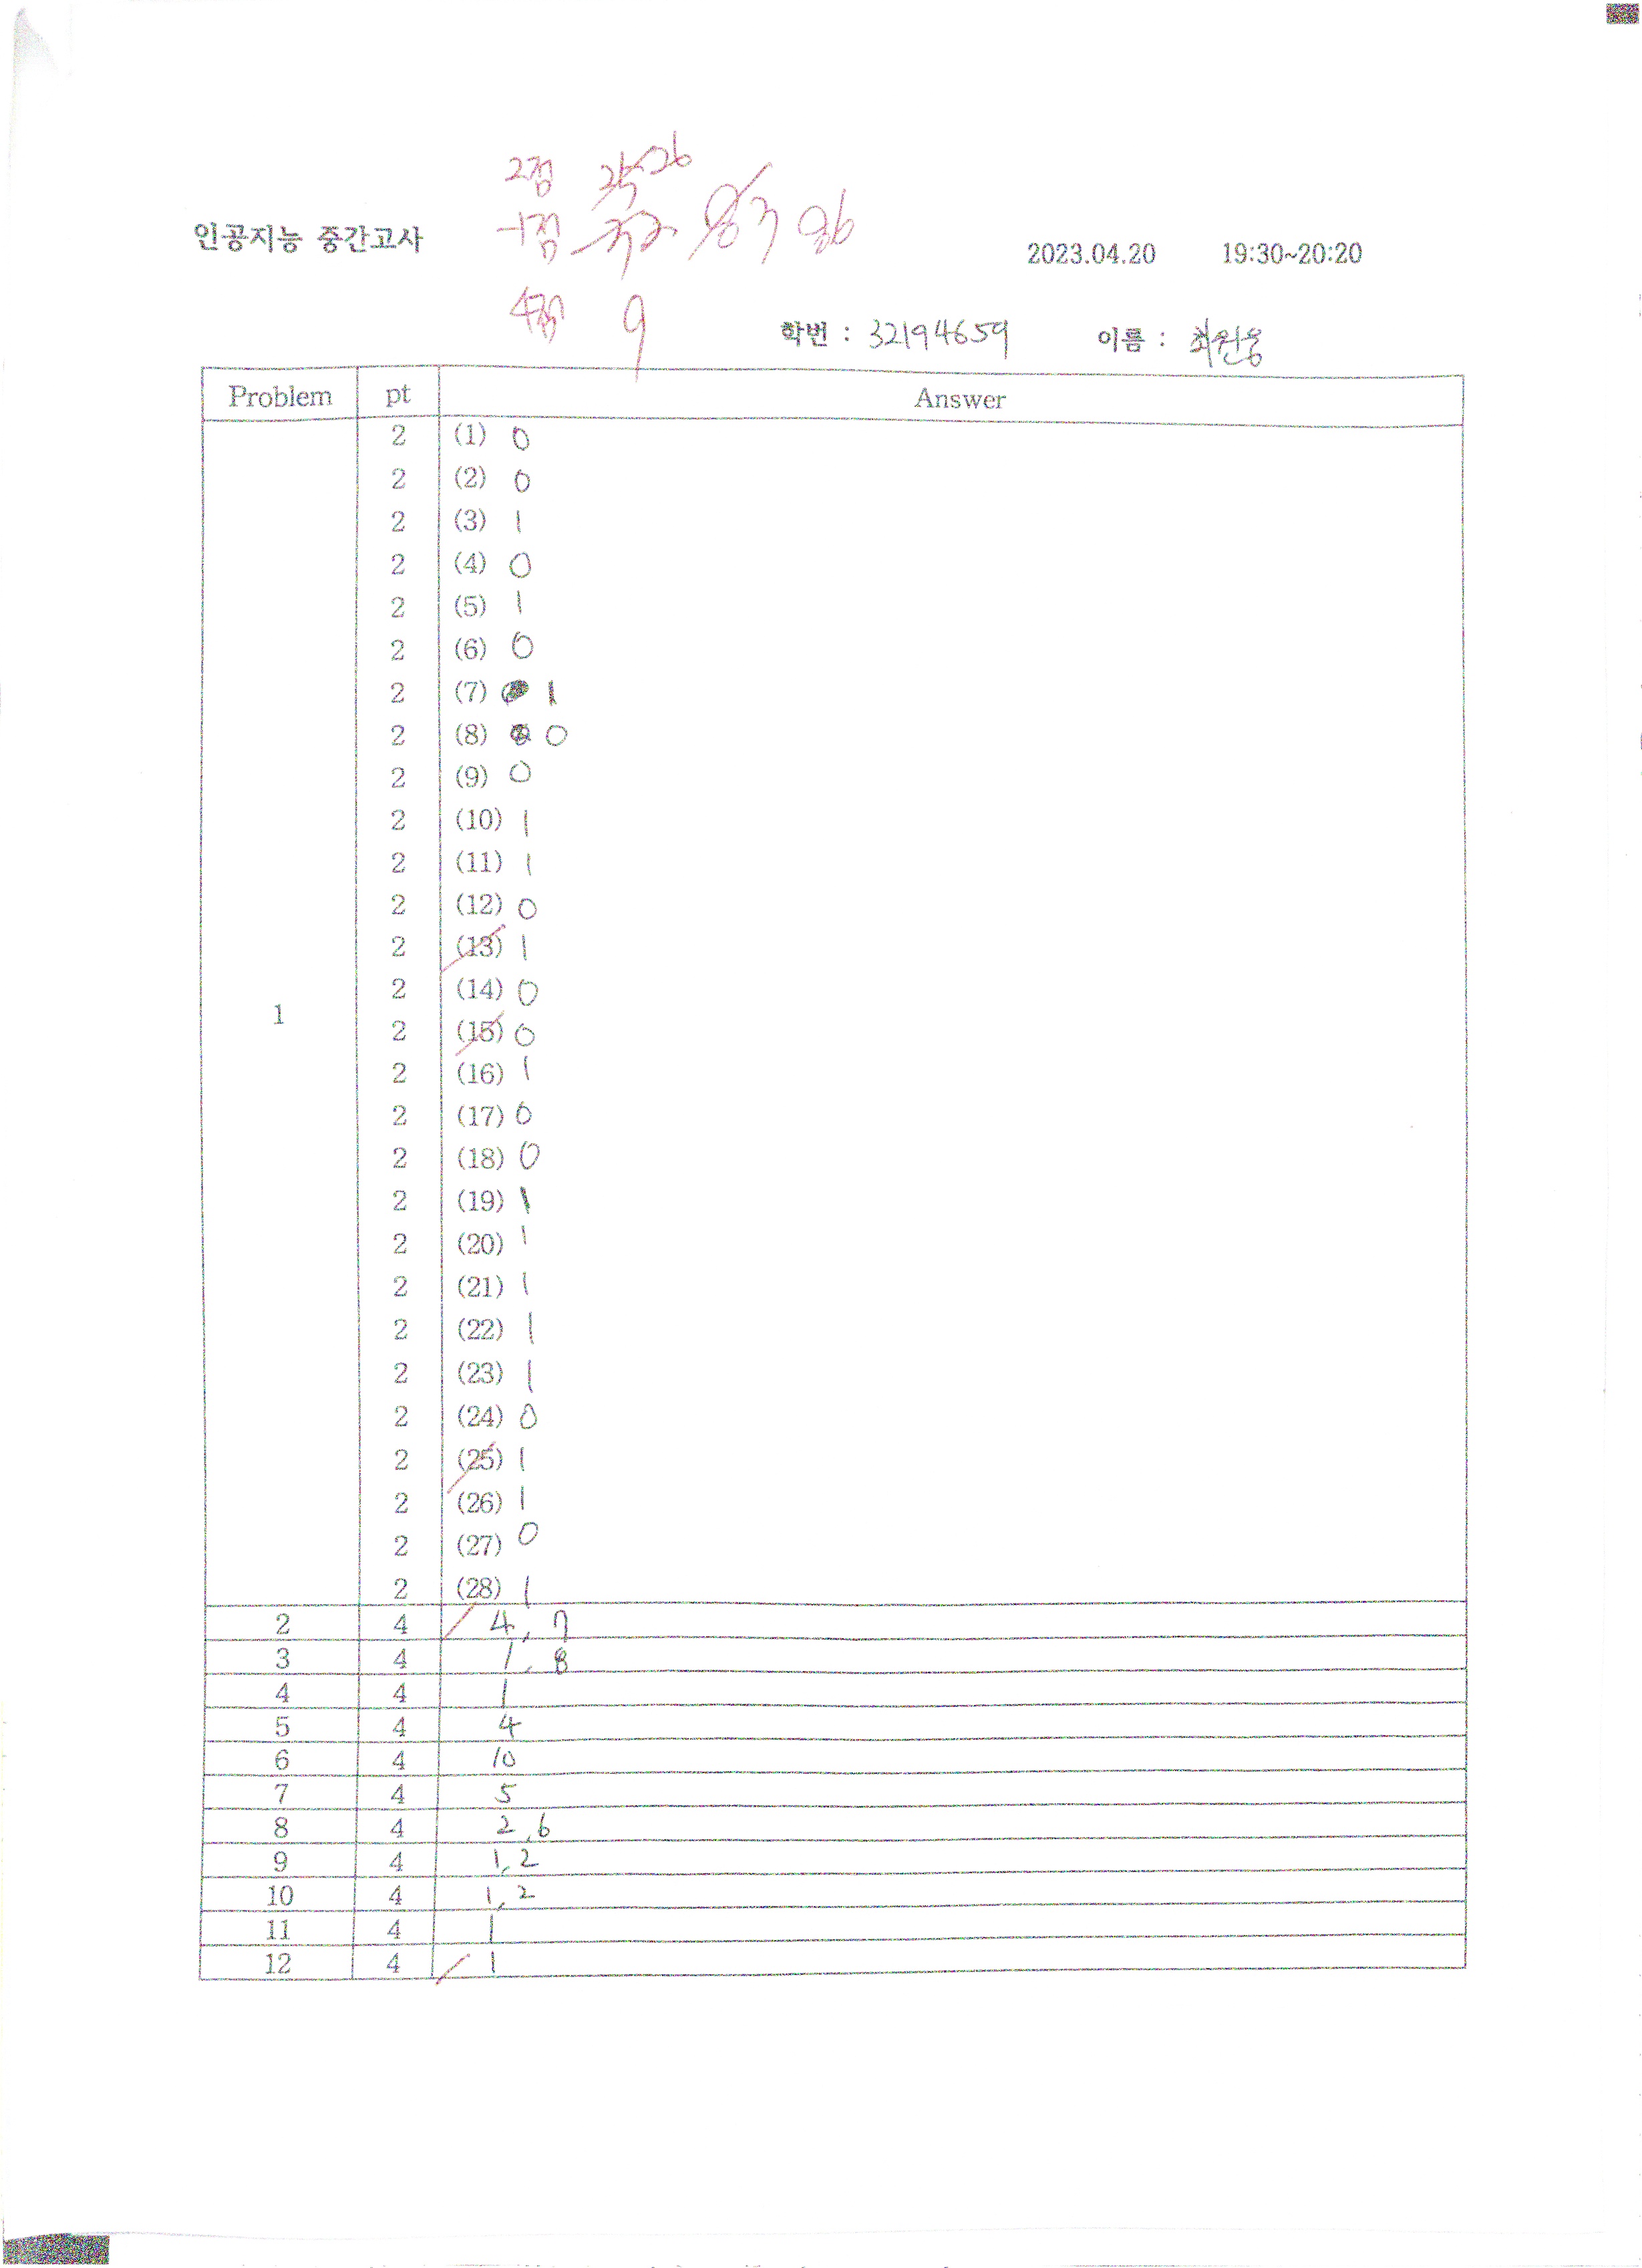 2점 26
인공지능 중간고사 -1점 86
2023.04.20 19:30~20:20
4점 9
학번 : 32194659 이름 : 최원용
Problem pt Answer
2 (1) 0
2 (2) 0
2 (3) 1
2 (4) 0
2 (5) 1
2 (6) 0
2 (7) 1
2 (8) 0
2 (9) 0
2 (10) 1
2 (11) 1
2 (12) 0
2 (13) 1
2 (14) 0
1
2 (15) 0
2 (16) 1
2 (17) 0
2 (18) 0
2 (19) 1
2 (20) 1
2 (21) 1
2 (22) 1
2 (23) 1
2 (24) 0
2 (25) 1
2 (26) 1
2 (27) 0
2 (28) 1
2 4 4, 7
3 4 1, 8
4 4 1
5 4 4
6 4 10
7 4 5
8 4 2, 6
9 4 1, 2
10 4 1, 2
11 4 1
12 4 1